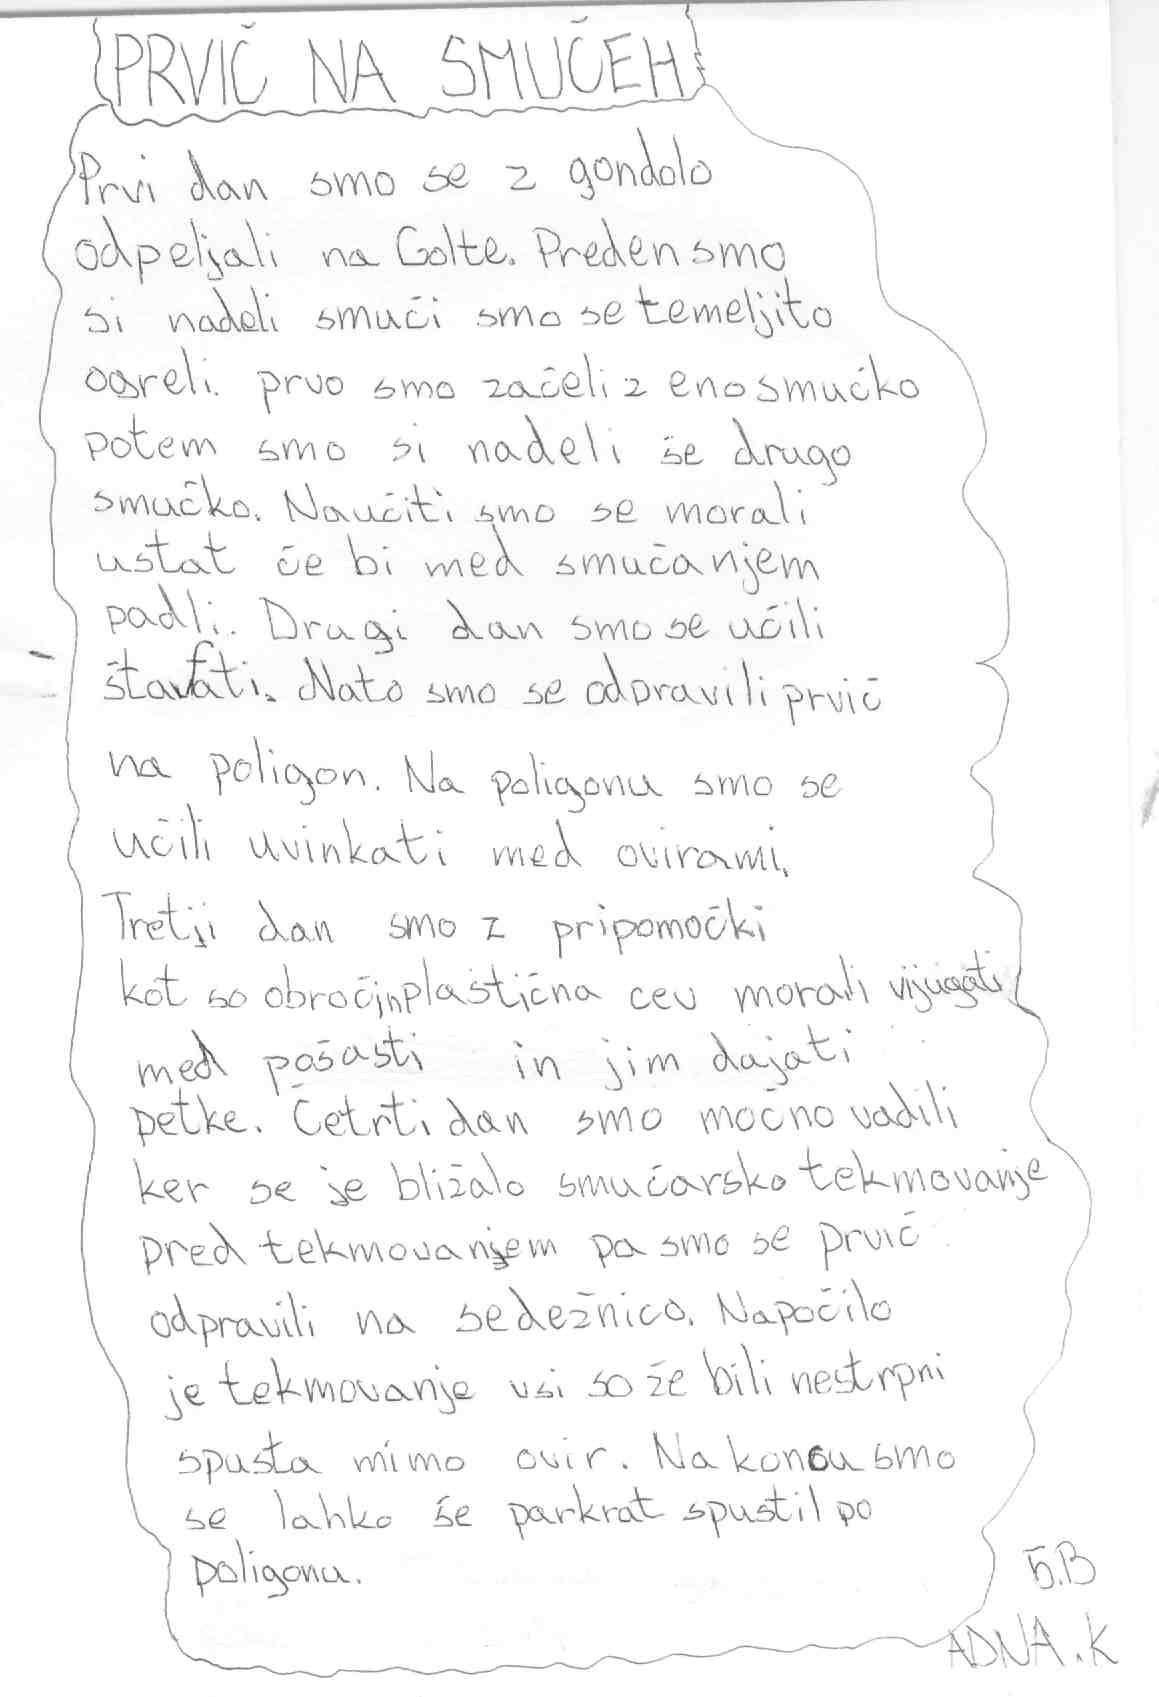 PRVIČ NA SMUČEH
Prvi dan smo se z gondolo
odpeljali na Golte. Preden smo
si nadeli smuči smo se temeljito
ogreli. prvo smo začeli z eno smučko
potem smo si nadeli še drugo
smučko. Naučiti smo se morali
ustat če bi med smučanjem
padli. Drugi dan smo se učili
štafati. Nato smo se odpravili prvič
na poligon. Na poligonu smo se
učili uvinkati med ovirami.
Tretji dan smo z pripomočki
kot so obroč in plastična cev morali vijugati
med pošasti in jim dajati
petke. Četrti dan smo močno vadili
ker se je bližalo smučarsko tekmovanje
pred tekmovanjem pa smo se prvič
odpravili na sedežnico. Napočilo
je tekmovanje vsi so že bili nestrpni
spusta mimo ovir. Na koncu smo
se lahko še parkrat spustil po
poligonu.
5.B
ADNA.K